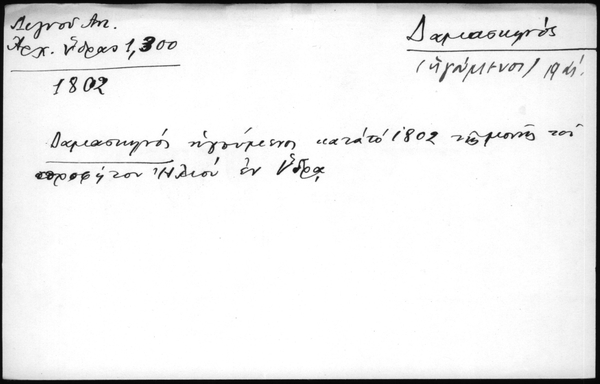 Λιγνοῦ Ἀν.
Ἀρχ. Ὕδρας 1,300
1802
Δαμασκηνός
(ἡγούμενος) 19 αἰ.
Δαμασκηνός ἡγούμενος κατά τό 1802 τῆς μονῆς τοῦ
προφήτου Ἠλιού ἐν Ὕδρᾳ